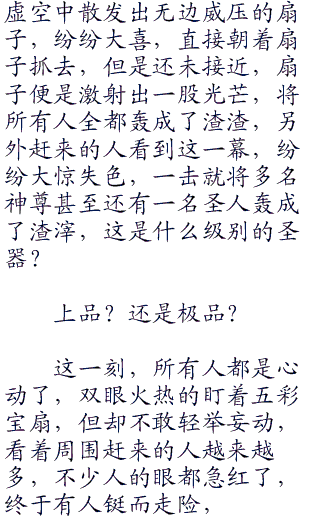 虚空中散发出无边威压的扇
子，纷纷大喜，直接朝着扇
子抓去，但是还未接近，扇
子便是激射出一股光芒，将
所有人全都轰成了渣渣，另
外赶来的人看到这一幕，纷
纷大惊失色，一击就将多名
神尊甚至还有一名圣人轰成
了渣滓，这是什么级别的圣
器？
上品？还是极品？
这一刻，所有人都是心
动了，双眼火热的盯着五彩
宝扇，但却不敢轻举妄动，
看着周围赶来的人越来越
多，不少人的眼都急红了，
终于有人铤而走险，